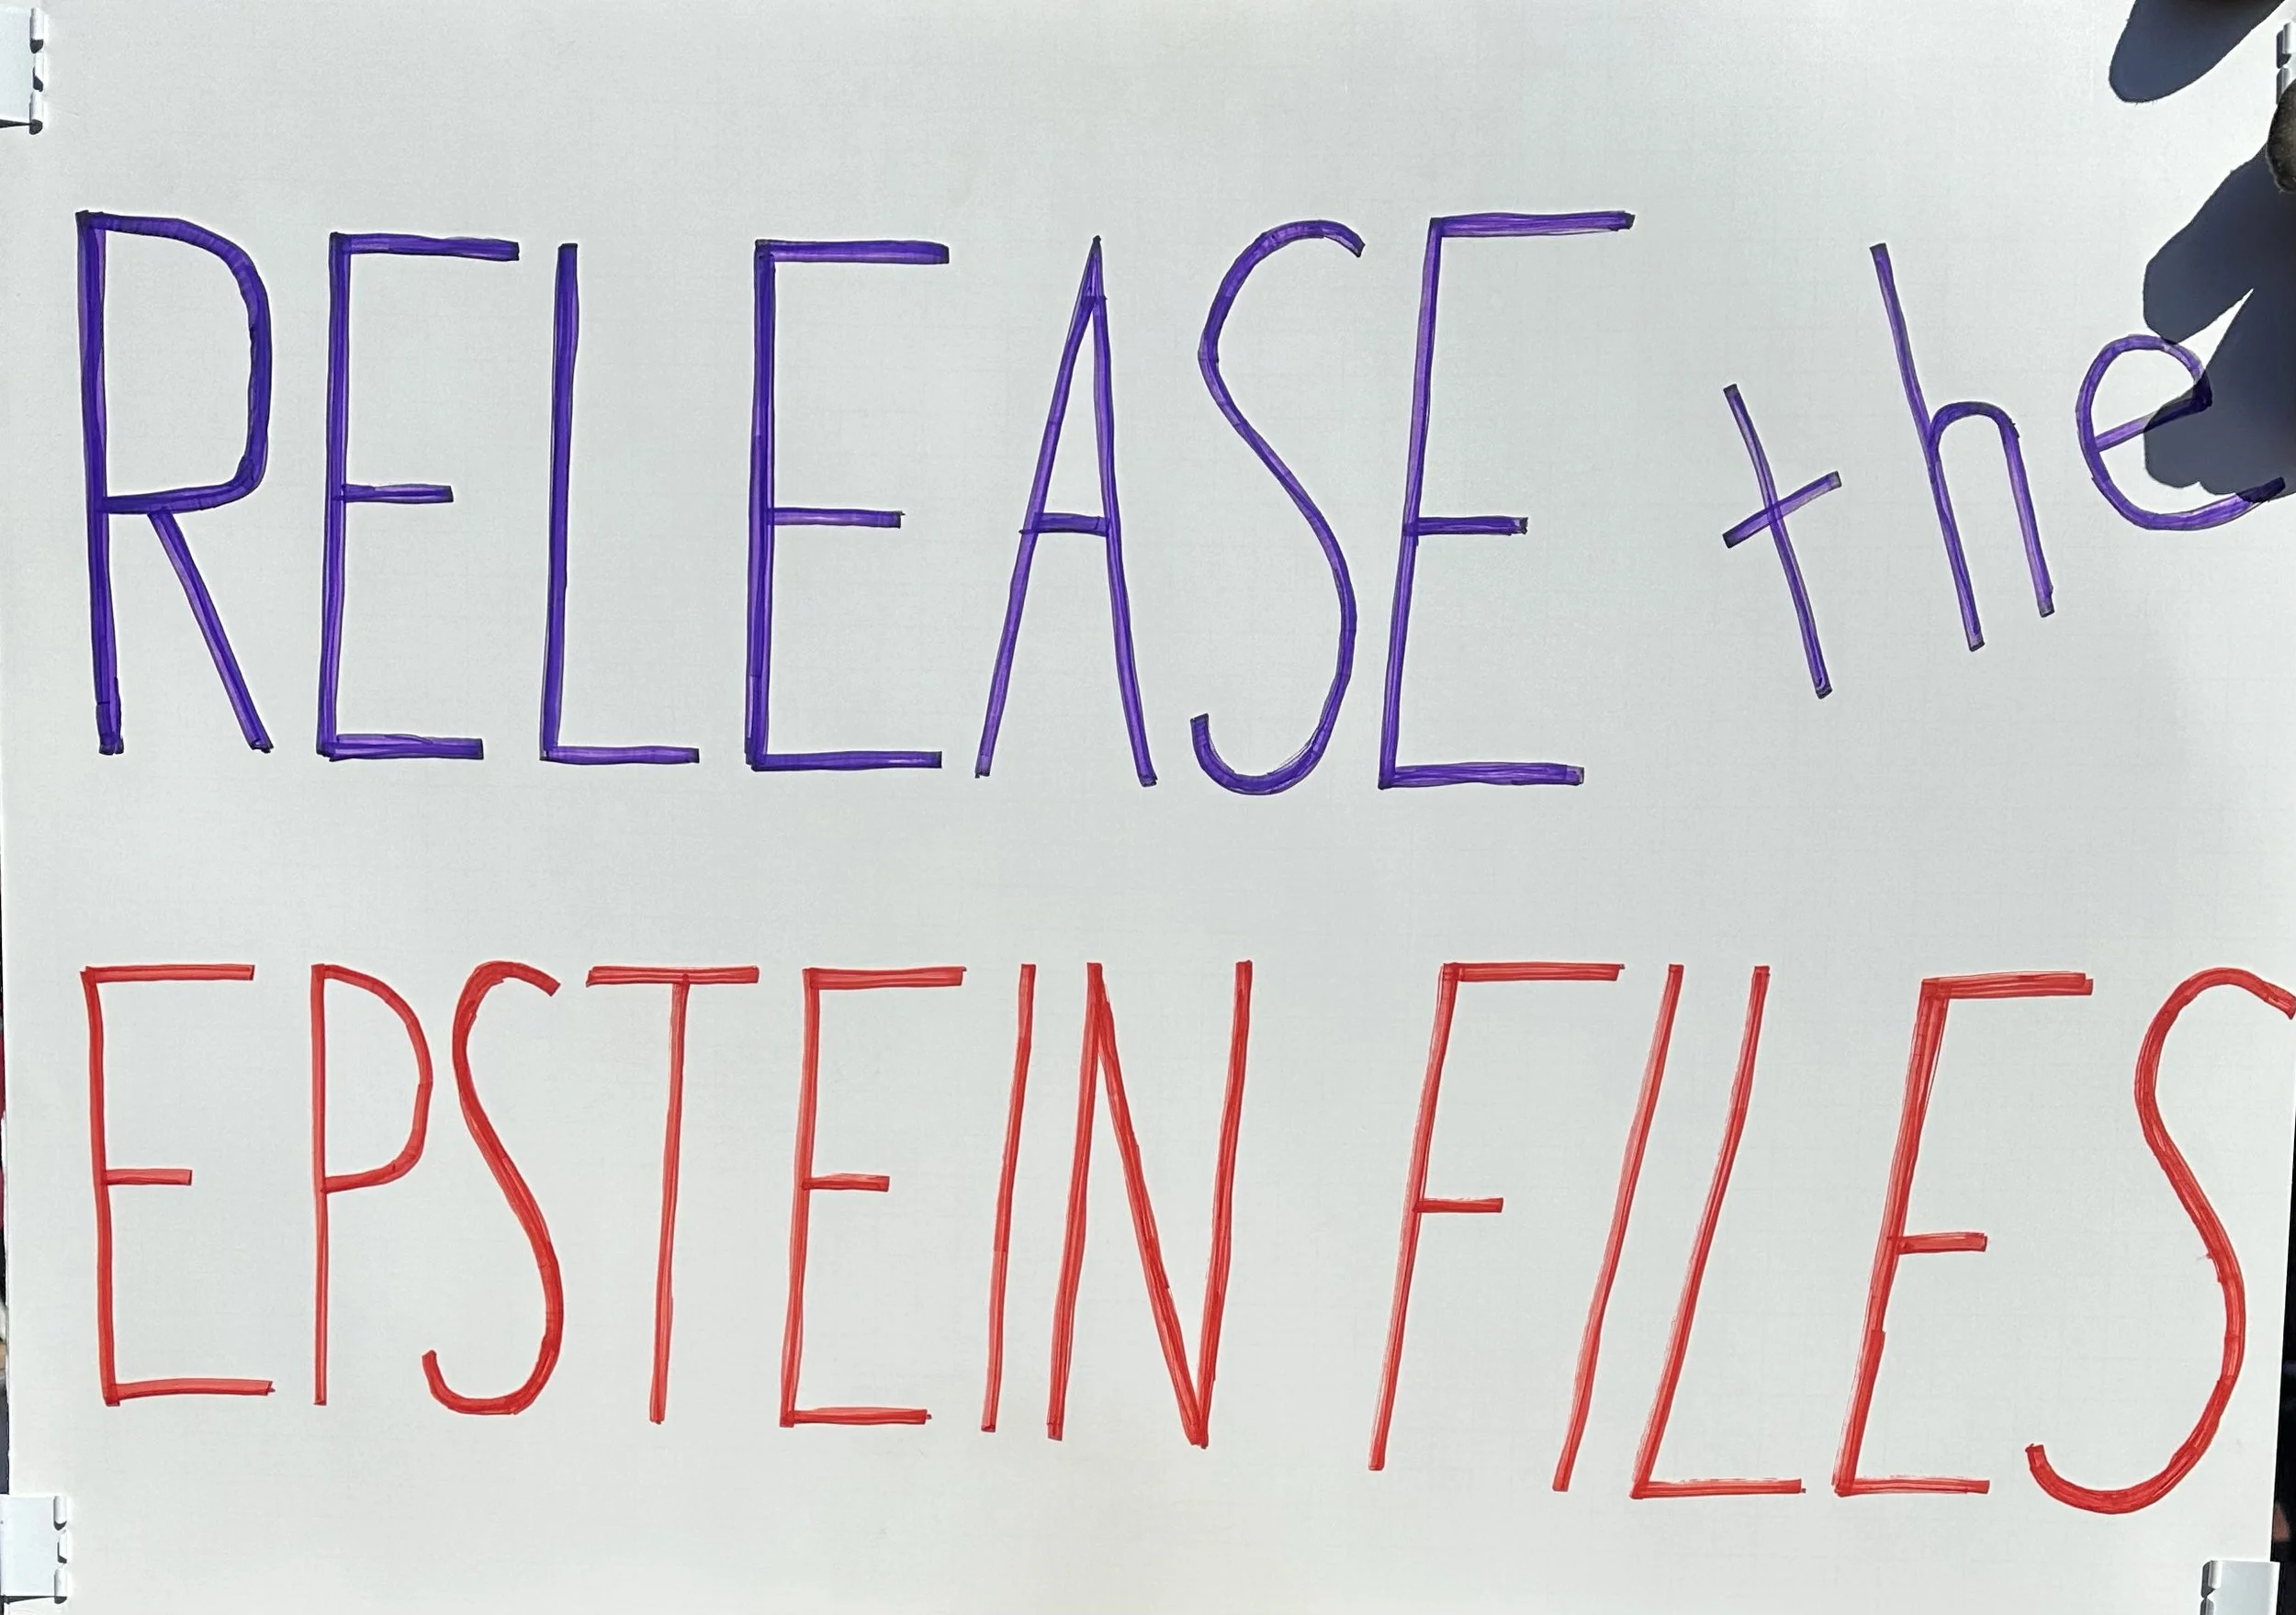 RELEASE the
EPSTEIN FILES